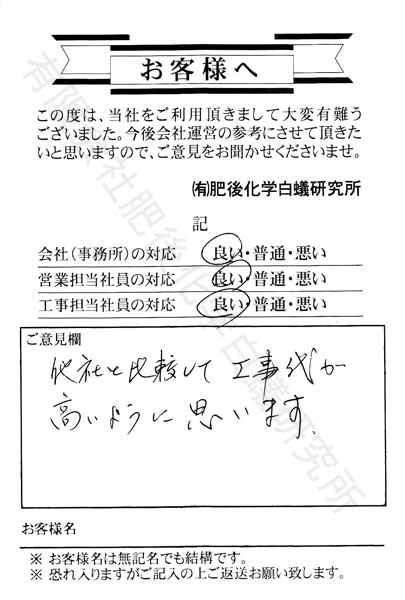 お客様へ
この度は、当社をご利用頂きまして大変有難う
ございました。今後会社運営の参考にさせて頂きた
いと思いますので、ご意見をお聞かせくださいませ。
㈲肥後化学白蟻研究所
記
会社（事務所）の対応 良い・普通・悪い
営業担当社員の対応 良い・普通・悪い
工事担当社員の対応 良い・普通・悪い
ご意見欄
他社と比較して工事代が
高いように思います。
お客様名
※ お客様名は無記名でも結構です。
※ 恐れ入りますがご記入の上ご返送お願い致します。
有限会社肥後化学白蟻研究所